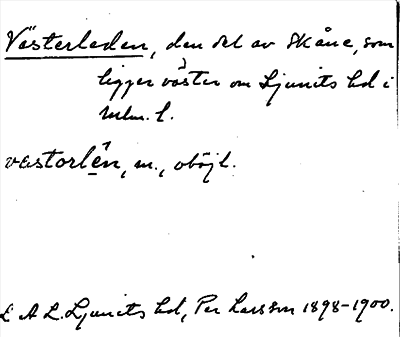 Västerleden, den del av Skåne, som
ligger väster om Ljunits hd i
Mlm. l.
vastorlên, m., oböjl.
L A L. Ljunits hd, Per Larsson 1898-1900.